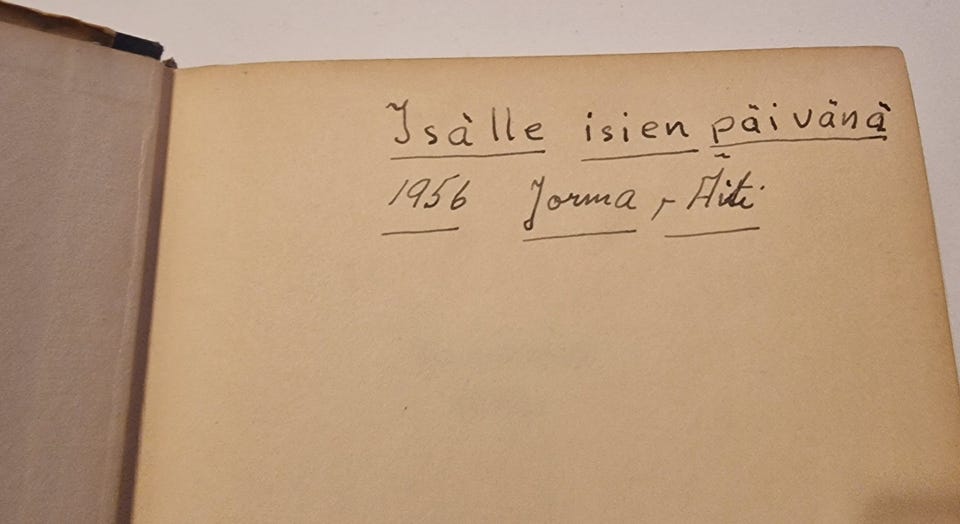 Isälle isien päivänä
1956 Jorma, - Äiti